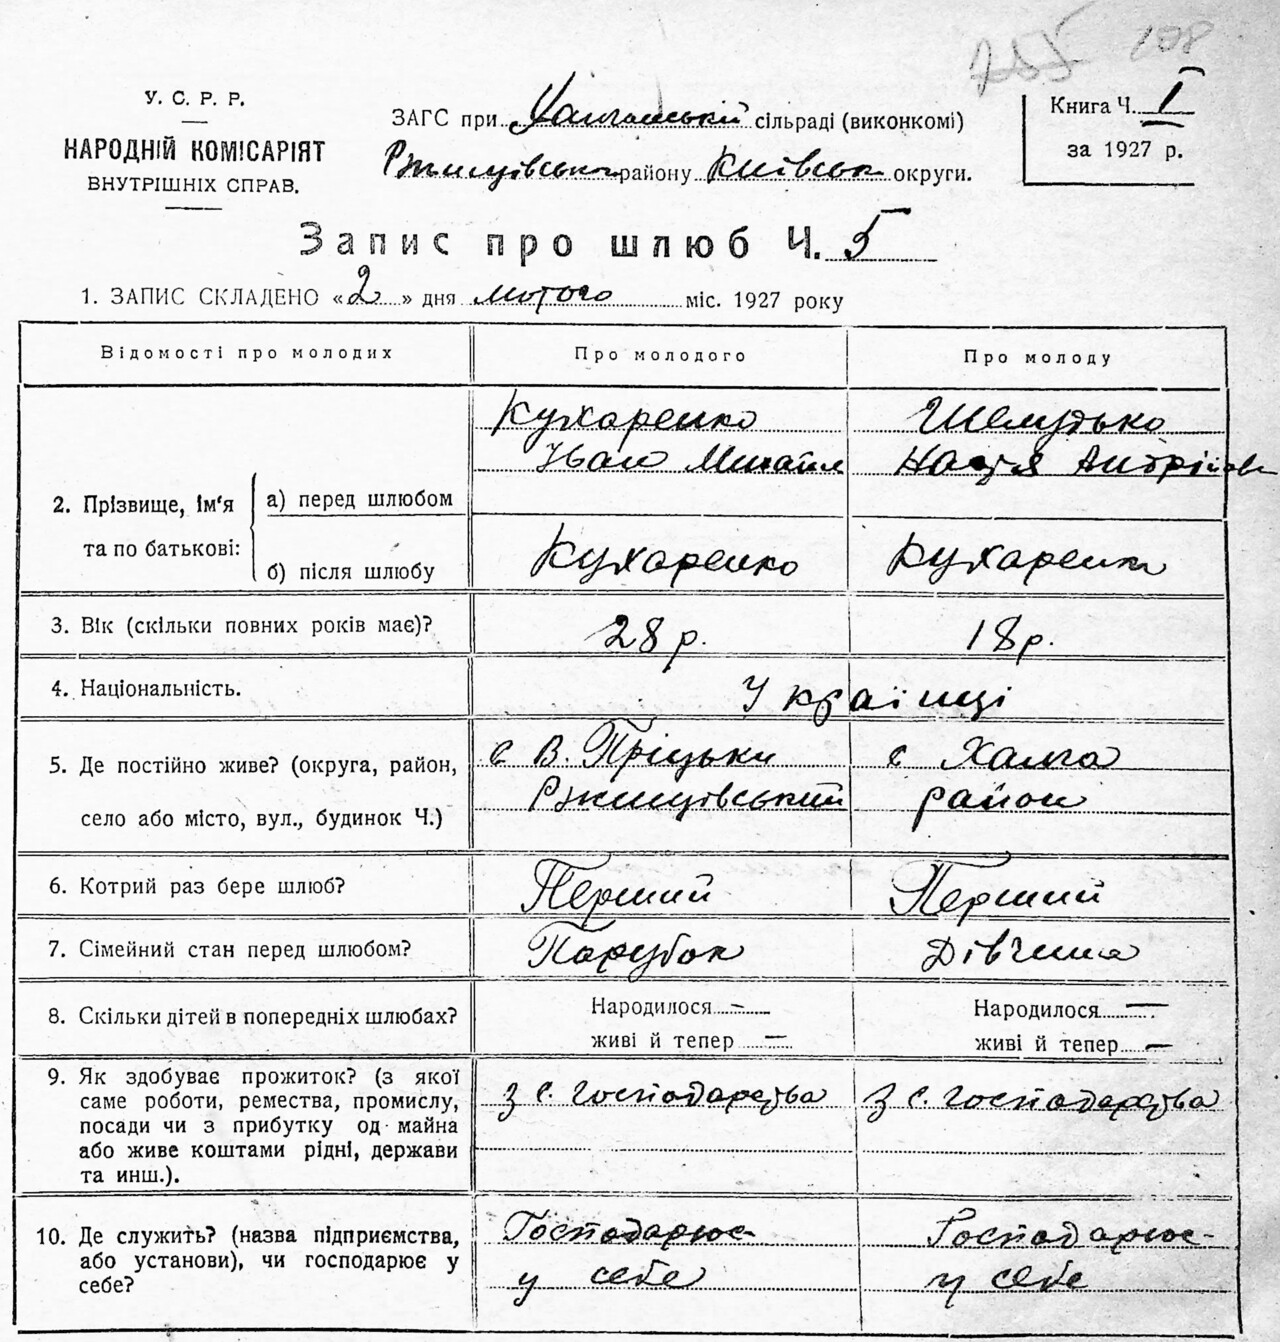 255 108
У. С. Р. Р.
НАРОДНІЙ КОМІСАРІЯТ
ВНУТРІШНІХ СПРАВ.
ЗАГС при Халчанській сільраді (виконкомі)
Ржищівськ району Київськ округи.
Книга Ч. I
за 1927 р.
Запис про шлюб Ч. 5
1. ЗАПИС СКЛАДЕНО «2» дня лютого міс. 1927 року
Відомості про молодих Про молодого Про молоду
2. Прізвище, ім'я та по батькові:
а) перед шлюбом
Кухаренко Шелудько
Іван Михайл Надія Андріїв
б) після шлюбу Кухаренко Кухаренко
3. Вік (скільки повних років має)? 28 р. 18 р.
4. Національність. Українці
5. Де постійно живе? (округа, район, с В. Пріцьки с Халча
село або місто, вул., будинок Ч.) Ржищівський район
6. Котрий раз бере шлюб? Перший Перший
7. Сімейний стан перед шлюбом? Парубок Дівчина
8. Скільки дітей в попередніх шлюбах? Народилося — Народилося —
живі й тепер — живі й тепер —
9. Як здобуває прожиток? (з якої
саме роботи, ремества, промислу,
посади чи з прибутку од майна
або живе коштами рідні, держави
та инш.).
з с. господарства з с. господарства
10. Де служить? (назва підприємства,
або установи), чи господарює у
себе?
Господарює Господарює
у себе у себе